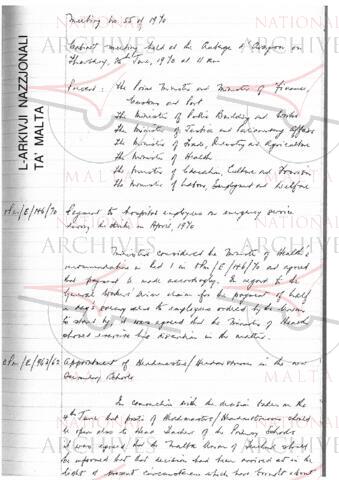 Meeting No. 55 of 1970
Cabinet meeting held at the Auberge d'Aragon on
Thursday, June, 1970 at 11 am
Present: The Prime Minister and Minister of Finance,
Customs and Port
The Minister of Public Building and Works
The Minister of Justice and Parliamentary Affairs
The Minister of Trade, Industry and Agriculture
The Minister of Health
The Minister of Education, Culture and Tourism
The Minister of Labour, Employment and Welfare
OPM/E/146/70 Payment to hospital employees on emergency service
during the strike in April, 1970
Ministers considered the Minister of Health's
recommendation in Red 1 in OPM/E/146/70 and agreed
that payment be made accordingly. In regard to the
General Workers' Union claim for the payment of half
a day's to employees ordered by the Union
to stand by, it was agreed that the Minister of Health
should exercise his discretion in the matter.
OPM/E/963/62 Appointment of Headmasters/Headmistresses in the new
Secondary Schools
In connection with the decision taken on the
4th June that posts of Headmaster/Headmistress should
be open also to Head Teachers of the Primary Schools
it was agreed that the Malta Union of Teachers should
be informed that that decision had been arrived at in the
light of present circumstances which have brought about
L-ARKIVJI NAZZJONALI
TA' MALTA
NATIONAL
ARCHIVES
MALTA